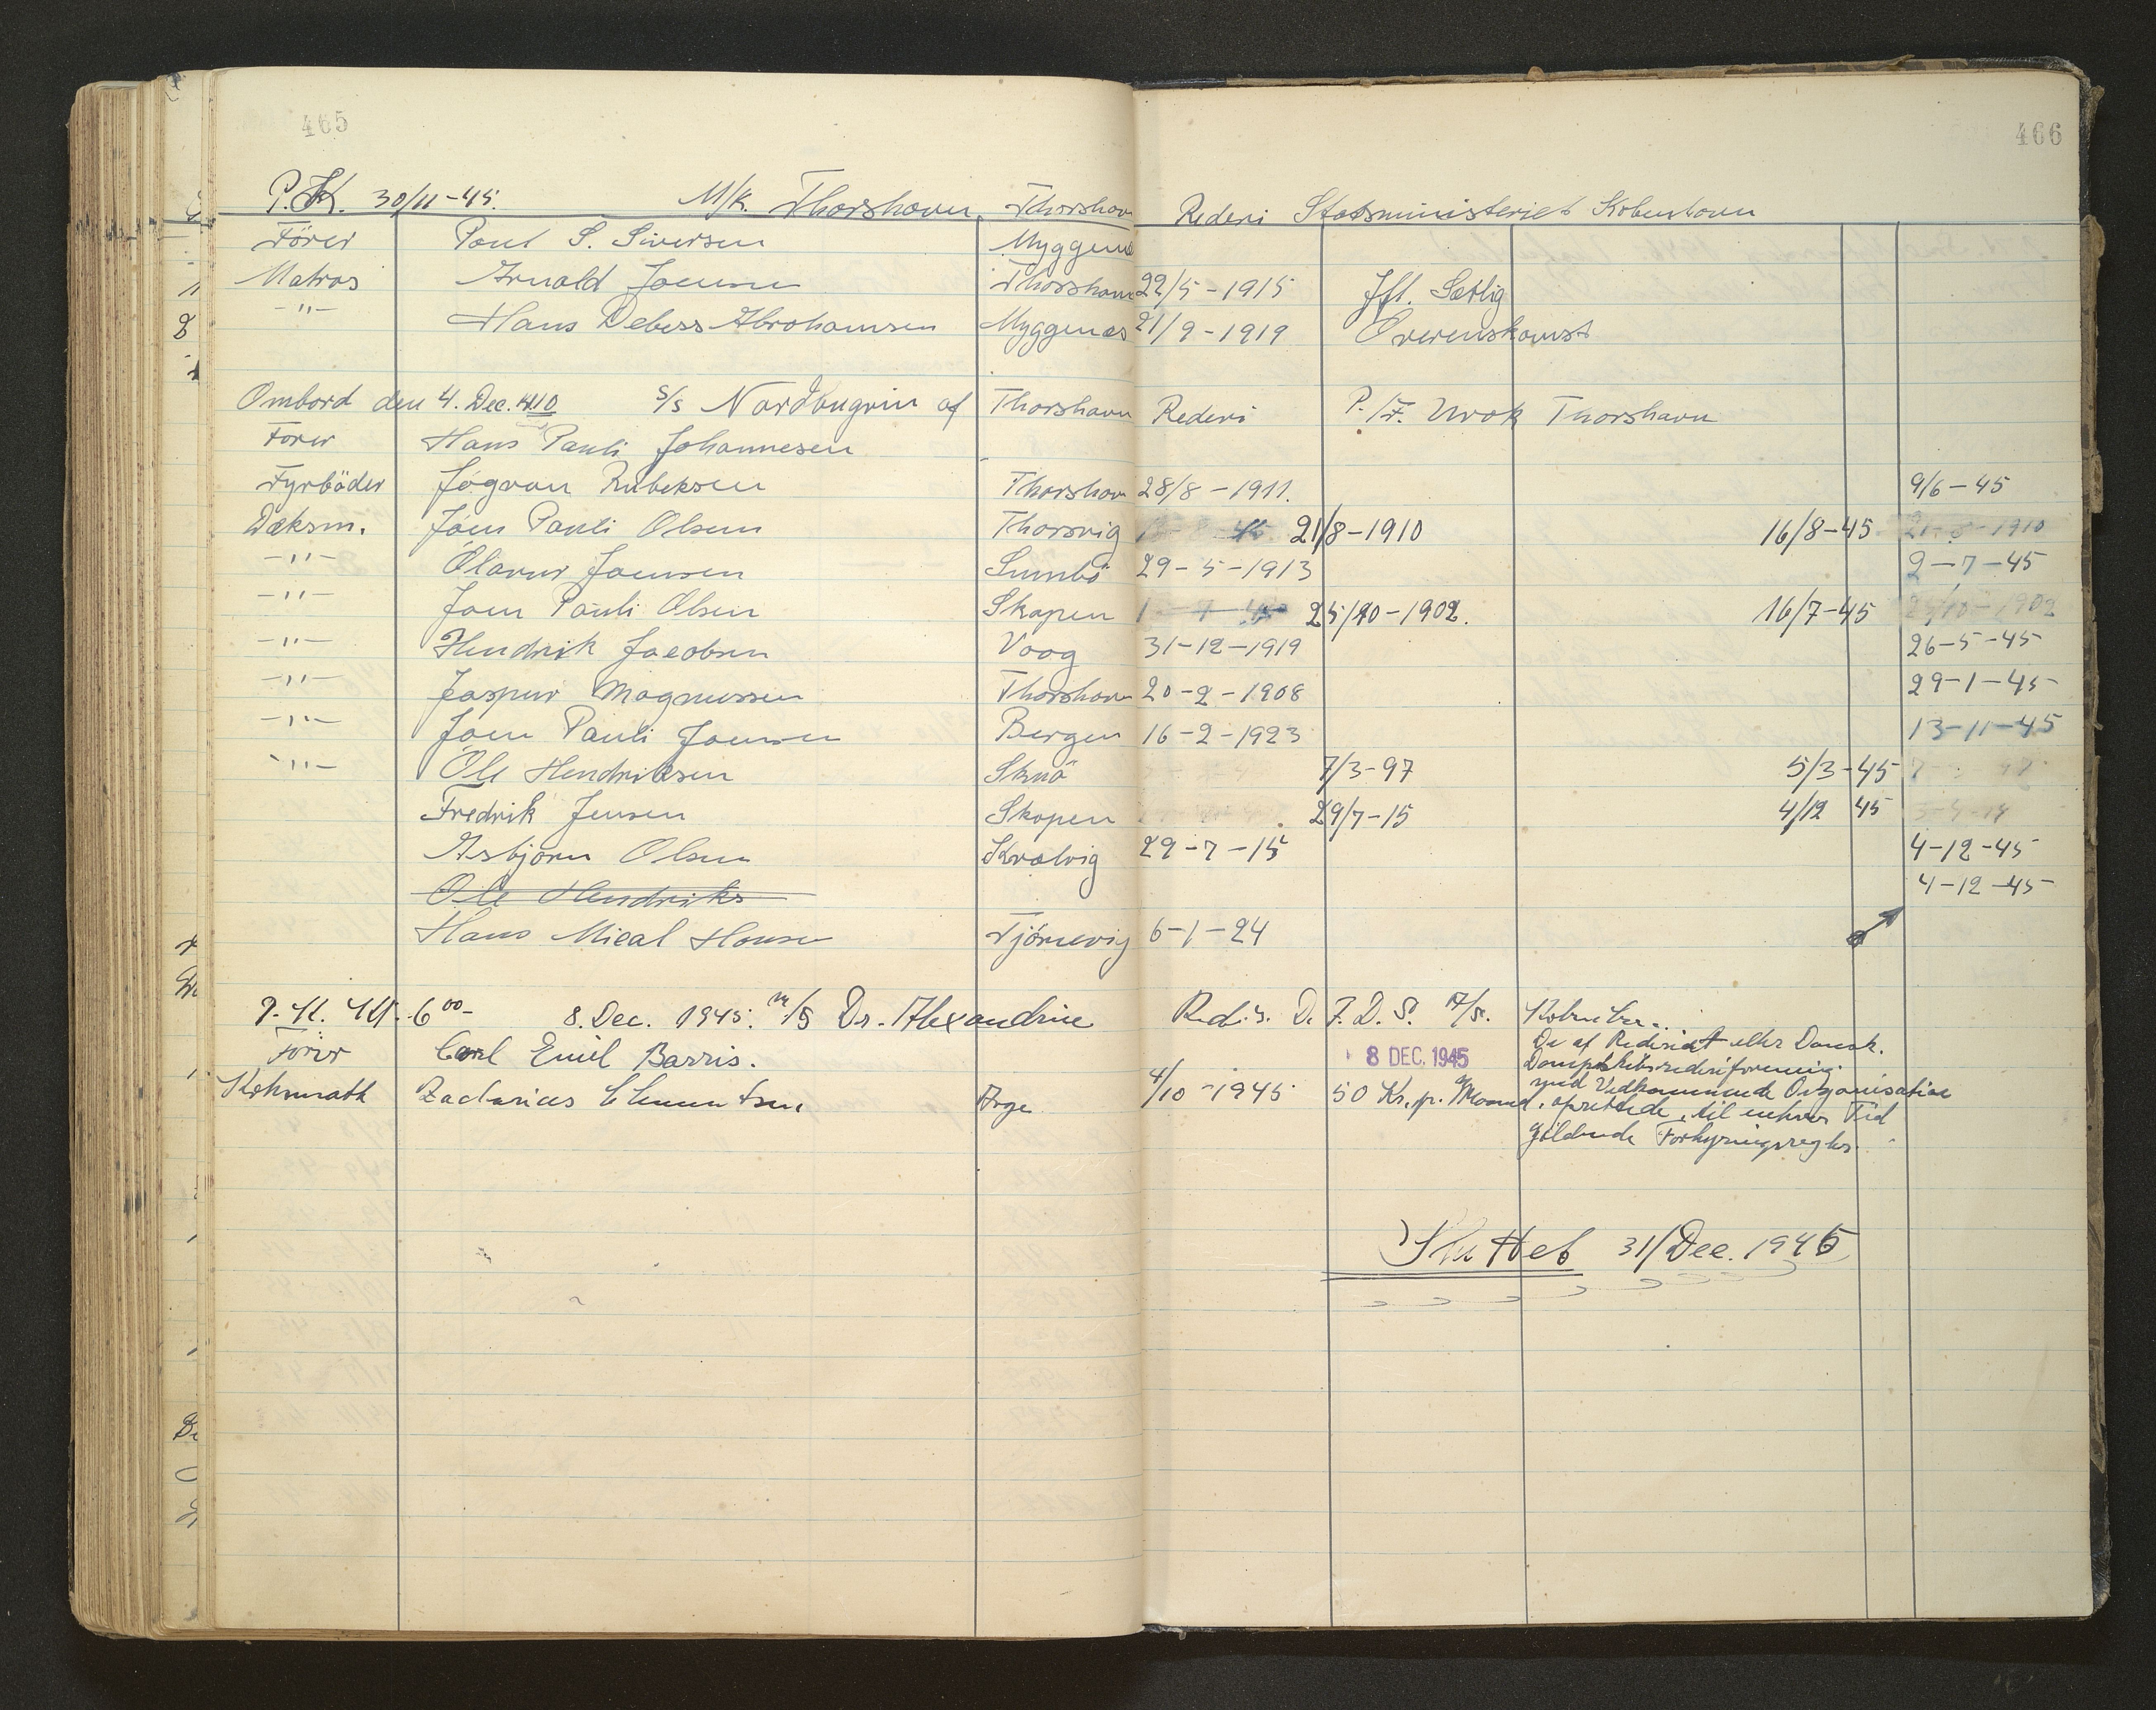 465
466
P.K. 30/11-45. M/k. Thorshavn, Thorshavn Rederi Statsministeriet Kobenhavn
Förer Poul S. Siversen Myggenæs
Matros Arnold Joensen Thorshavn 22/5-1915 Jfl. Sætlig
-"- Hans Debess Abrahamsen Myggenæs 21/9-1919 Overenskomst
Ombord den 4. Dec. S/S Nordbugvin af Thorshavn Rederi P./F. Thorshavn
Förer Hans Pauli Johannesen
Fyrböder Jógvan Rubeksen Thorshavn 28/8-1911. 9/6-45
Dæksm. Jóen Pauli Olsen Thorsvig 21/8-1910 16/8-45 21-8-1910
-"- Ólavur Joensen Sumbö 29-5-1913 2-7-45
-"- Joen Pauli Olsen Skopen 25/10-1902. 16/7-45 25/10-1902
-"- Hendrik Jacobsen Vaag 31-12-1919 26-5-45
-"- Jaspur Magnussen Thorshavn 20-2-1908 29-1-45
-"- Joen Pauli Joensen Bergen 16-2-1923 13-11-45
-"- Óle Hendriksen Skuö 7/3-97 5/3-45
Fredrik Jensen Skopen 29/7-15 4/12 45
Asbjörn Olsen Kvalvig 29-7-15 4-12-45
Ole Hendriks 4-12-45
Hans Mical Hansen Tjörnevig 6-1-24
P.K. Kl. 6⁰⁰- 8. Dec. 1945. M/S Dr. Alexandrine Rederi. D. F. D. S. A/S.
Förer Carl Emil Barris. 8 DEC. 1945 De af Rederiet eller Dansk.
Dampskibsrederiforening
Koksmath Zacharias Clementsen Arge 4/10-1945 50 Kr. pr. Maaned. med Vedkommende Organisation
oprettede, til enhver Tid
gældende Forhyringsregler.
Sluttet 31/Dec. 1945